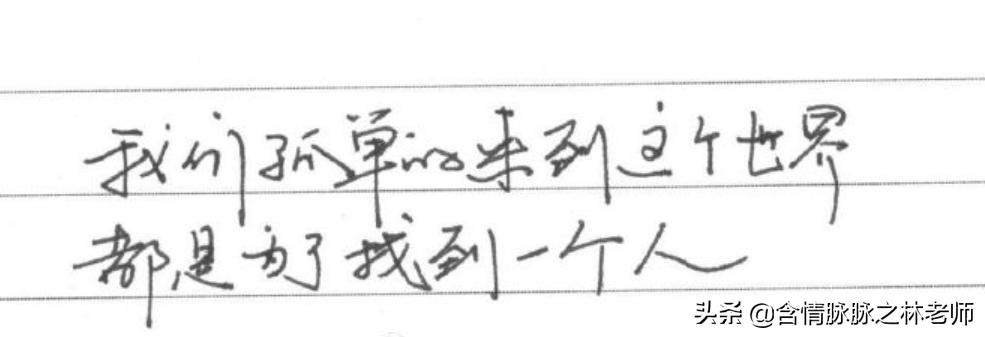 我们孤单的来到这个世界
都是为了找到一个人
头条 @含情脉脉之林老师